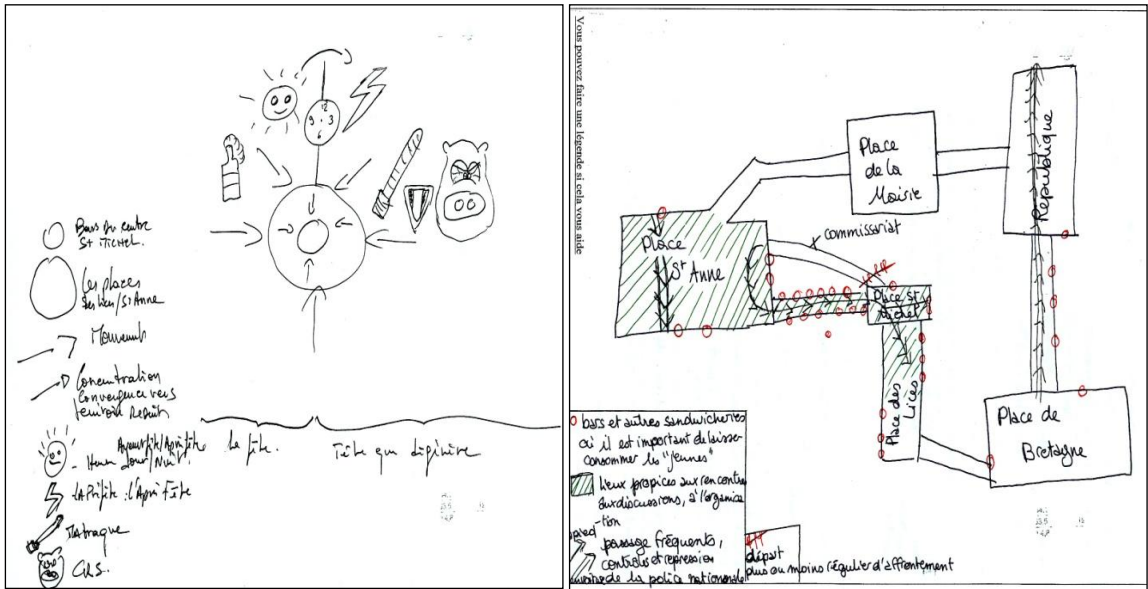 12
9 3
6
Bars du centre
St Michel.
Les places
des Lices/St Anne
Mouvement
Concentration
Convergence vers
Avant fête/Après fête
- Heure Jour/Nuit.
la fête.
Fête qui dégénère
l'Après Fête
Matraque
CRS.
Vous pouvez faire une légende si cela vous aide
Place
de la
Mairie
République
commissariat
Place
St Anne
Place St
Michel
Place des
Lices
Place de
Bretagne
bars et autres sandwicheries
où il est important de laisser
consommer les "jeunes"
lieux propices aux rencontres
aux discussions, à l'organisa
-tion
passage fréquents,
controles et repression
de la police nationale
départ
plus ou moins régulier d'affrontement